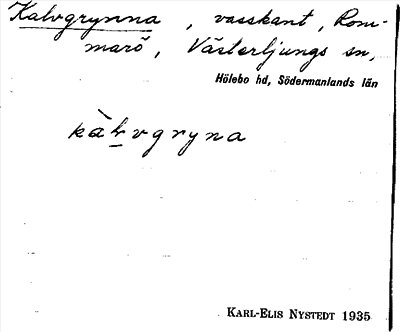 Kalvgrynna, vasskant, Rom-
marö, Västerljungs sn,
Hölebo hd, Södermanlands län
kàlvgryna
KARL-ELIS NYSTEDT 1935